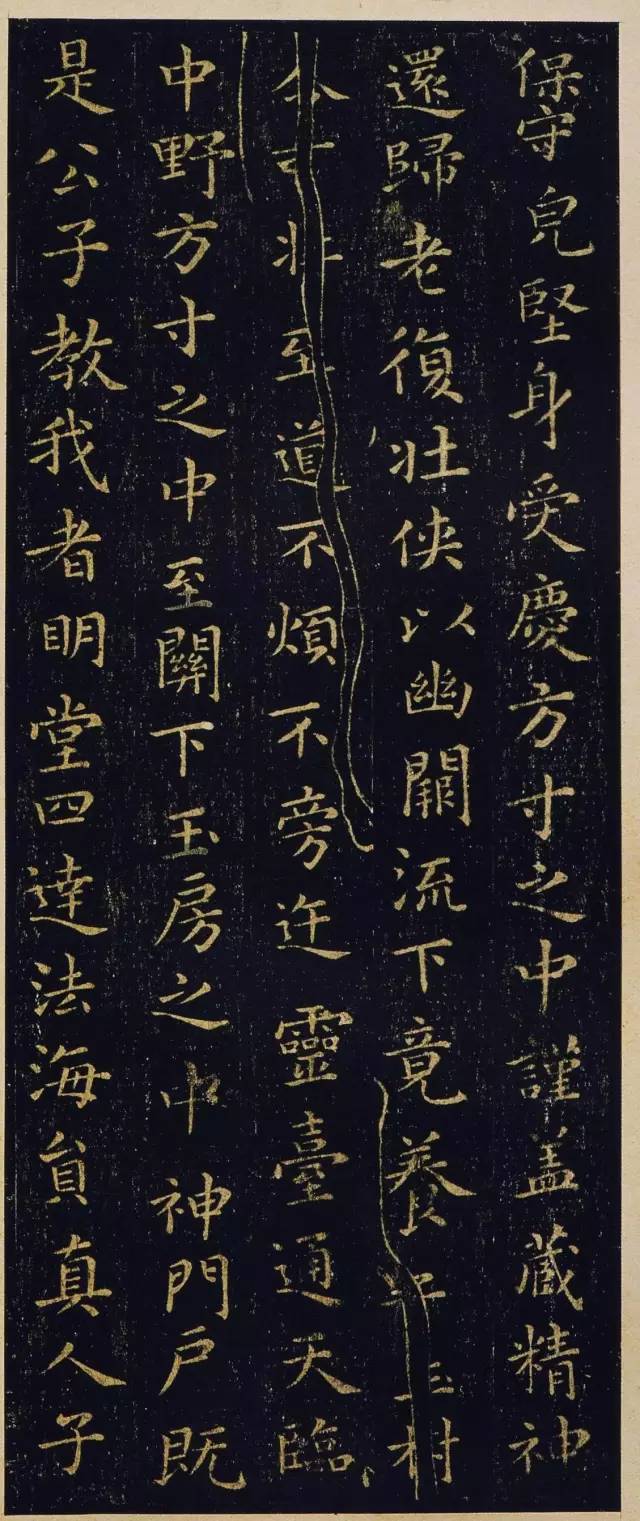 保守皃堅身受慶方寸之中謹盖藏精神
還歸老復壯俠以幽闕流下竟養玉樹
令可壯至道不煩不旁迕靈臺通天臨
中野方寸之中至關下玉房之中神門戶既
是公子教我者明堂四達法海員真人子